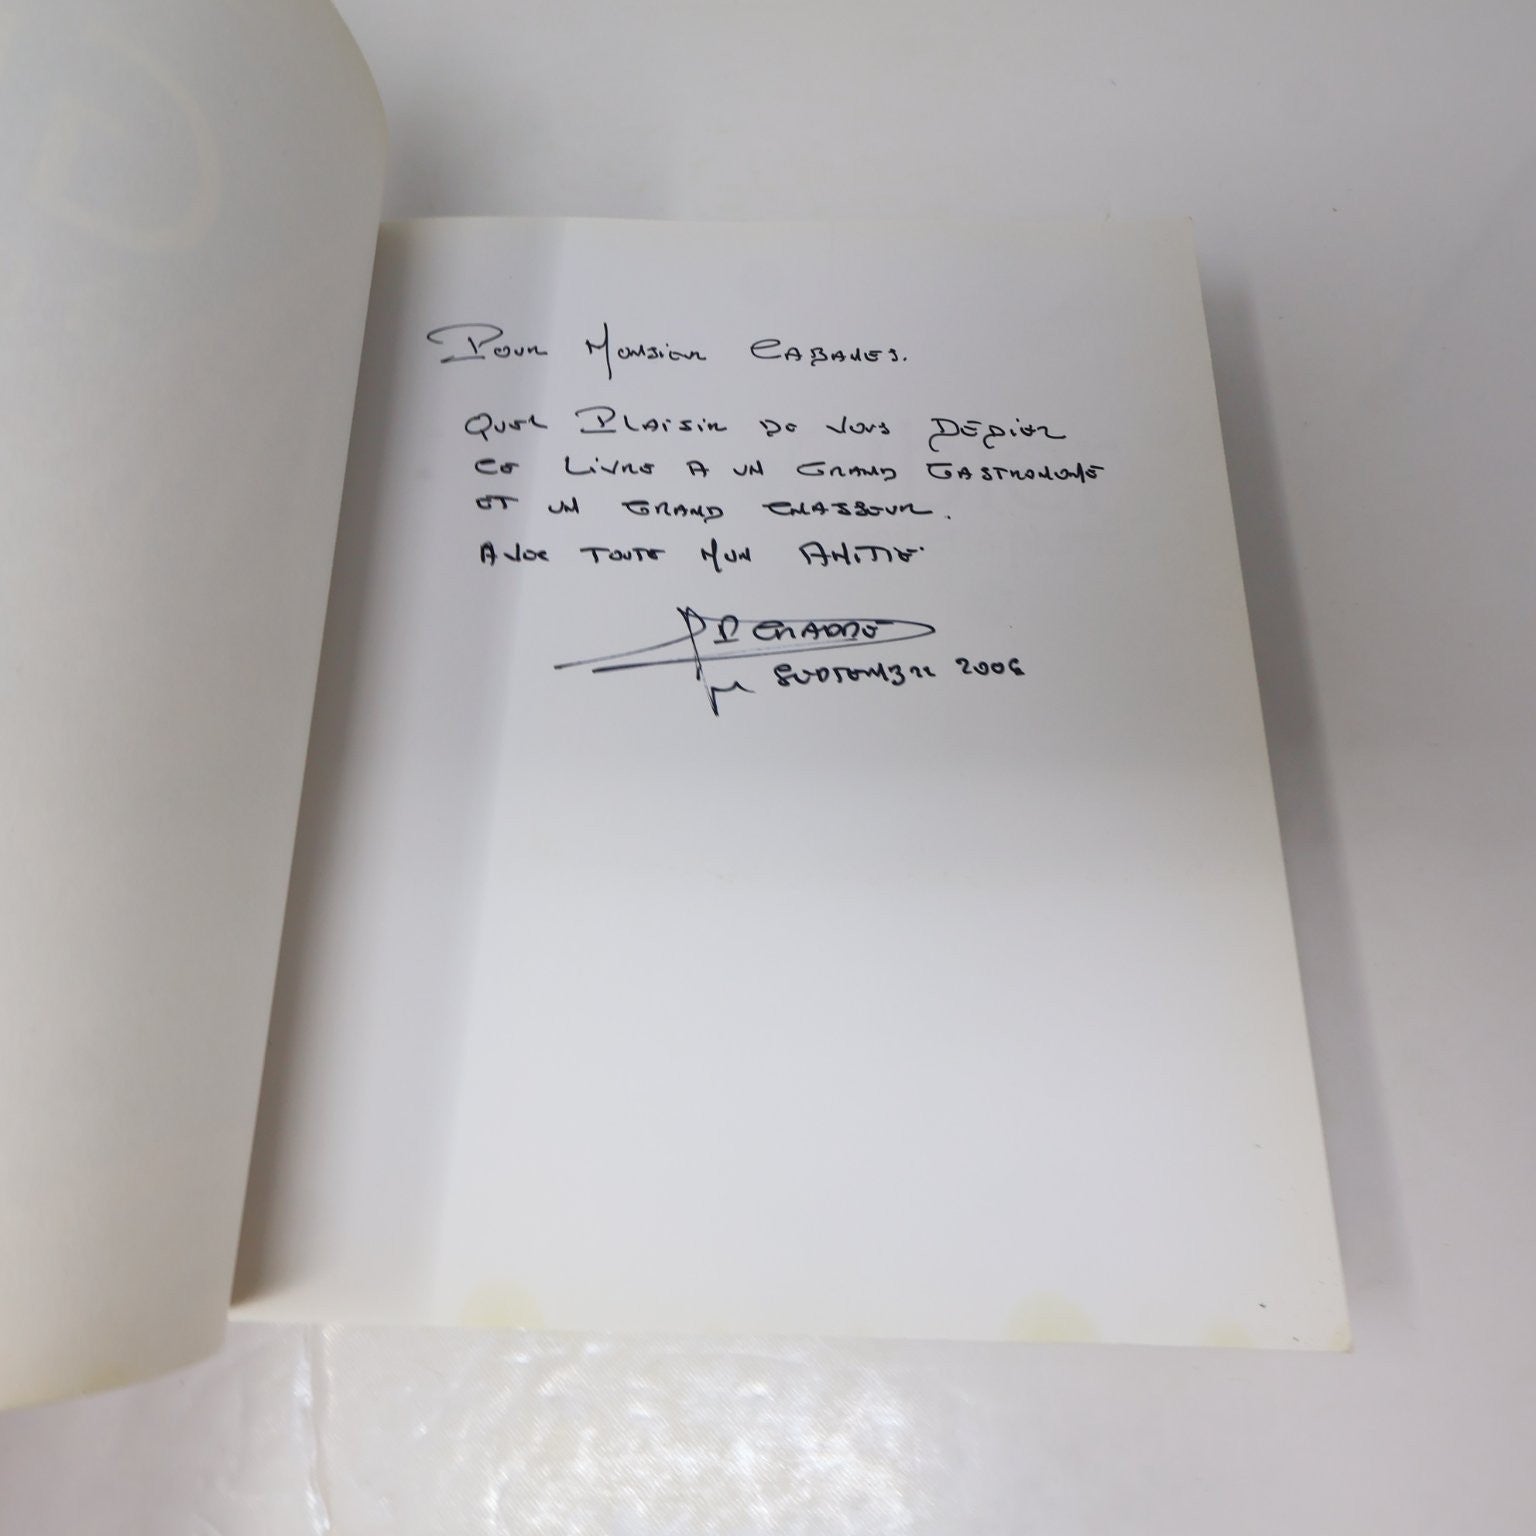 Pour Monsieur CABANES.
QUEL PLAISIR DE VOUS DÉDIER
CE LIVRE A UN GRAND GASTRONOME
ET UN GRAND CHASSEUR.
AVEC TOUTE MON AMITIÉ
SEPTEMBRE 2006